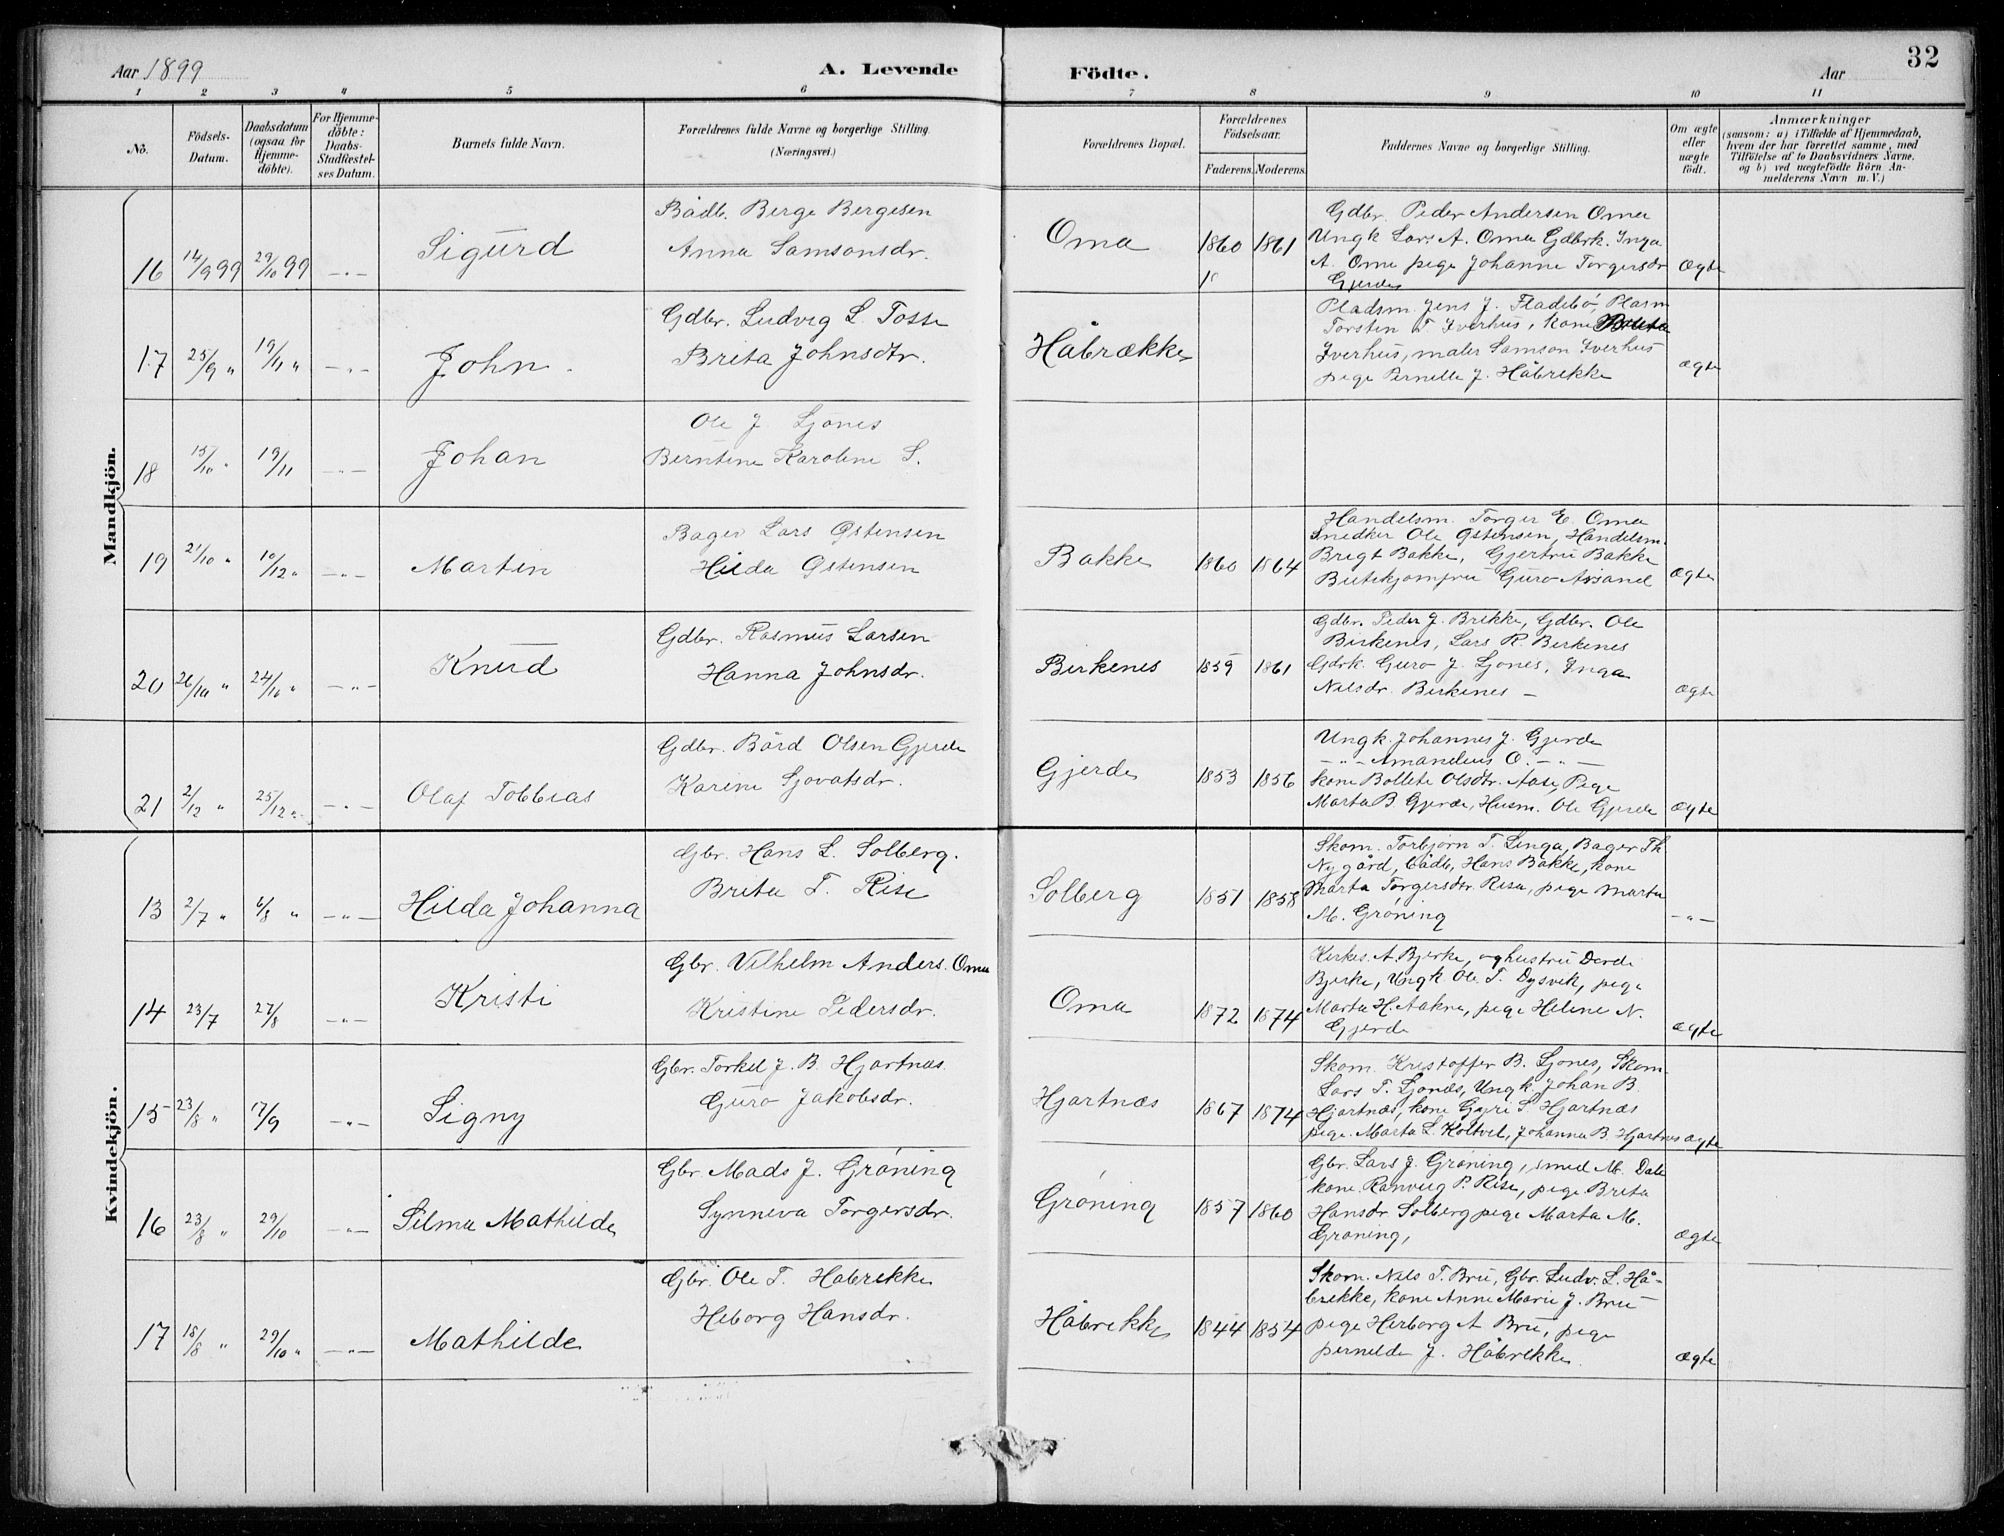 Aar 1899
A. Levende
Födte.
Aar
32
1 2 3 4 5 6 7 8 9 10 11
No.
Födsels-Datum.
Daabsdatum (ogsaa for Hjemmedöbte).
For Hjemmedöbte: Daabs-Stadfæstelses Datum.
Barnets fulde Navn.
Forældrenes fulde Navne og borgerlige Stilling.
(Næringsvei.)
Forældrenes Bopæl.
Forældrenes Födselsaar.
Faderens. Moderens.
Faddernes Navne og borgerlige Stilling.
Om ægte eller uægte födt.
Anmærkninger
(saasom: a) i Tilfælde af Hjemmedaab,
hvem der har forrettet samme, med
Tilföielse af to Daabsvidners Navne.
og b) ved uægtefödte Börn An-
melderens Navn m. V.)
Mandkjön.
16 14/9 99 29/10 99 -"- Sigurd
Bådb. Berge Bergesen
Anna Samsonsdr.
Oma 1860 1861
Gdbr. Peder Andersen Oma
Ungk Lars A. Oma Gdbrk. Inga
A. Oma pige Johanne Torgersdr
Gjerde
Ægte
17 25/9 " 19/11 " -"- John.
Gdbr. Ludvig L. Tosse
Brita Johnsdtr.
Håbrække
Pladsm. Jens J. Fladebø, Plasm
Torsten T Iverhus, kone
Iverhus, maler Samson Iverhus
pige Pernelle J. Håbrekke
Ægte
18 15/10 " 19/11 -"- Johan
Ole J Ljones
Berntine Karoline S.
19 21/10 " 10/12 " -"- Martin
Bager Lars Østensen
Hilda Østensen
Bakke 1860 1864
Handelsm. Torger E. Oma
Snedker Ole Østensen, Handelsm.
Brigt Bakke, Gjertru Bakke
Butikjomfru Guro Aisand
Ægte
20 26/10 " 24/10 " -"- Knud
Gdbr. Rasmus Larsen
Hanna Johnsdr.
Birkenes 1859 1861
Gdbr. Peder J. Brekke, Gdbr. Ole
Birkenes, Lars R. Birkenes
Gdrk. Guro J. Ljones, Inga
Nilsdr. Birkenes -
Ægte
21 2/12 " 25/12 " -"- Olaf Tobbias
Gdbr. Bård Olsen Gjerde
Karine Sjovatsdr.
Gjerde 1853 1856
Ungk. Johannes J. Gjerde
-"- Amandeus O. -"-
kone Bollete Olsdtr. Aase, Pige
Marta B Gjerde, Husm. Ole Gjerde
Ægte
Kvindekjön.
13 2/7 " 6/8 " -"- Hilda Johanna
Gbr. Hans L. Solberg.
Brita T. Rise
Solberg 1851 1858
Skom. Torbjørn T. Linga, Bager Th
Nygård, bådb, Hans Bakke, kone
Marta Torgersdtr Risa, pige Marta
M. Grøning
-"-
14 23/7 27/8 -"- Kristi
Gbr. Vilhelm Anders. Oma
Kristine Pedersdr.
Oma 1872 1874
Kirkes. A. Bjerke, og hustru Dorde
Bjerke, Ungk Ole T. Dysvik, pige
Marta H. Aakre, pige Helene N.
Gjerde
ægte
15 23/8 " 17/9 -"- Signy
Gbr. Torkel J. B. Hjartnæs
Guro Jakobsdr.
Hjartnæs 1867 1874
Skom. Kristoffer B. Ljones, Skom.
Lars T. Ljonæs, Ungk. Johan B.
Hjartnæs, kone Gyri S. Hjartnæs
pige. Marta L. Koltvet, Johanna B. Hjartnæs
ægte
16 23/8 " 29/10 -"- Selma Mathilde
Gbr. Mads J. Grøning
Synneva Torgersdr.
Grøning 1857 1860
Gbr. Lars J. Grøning, smed M. Dale
kone. Ranveig P. Rise, pige Brita
Hansdr Solberg pige Marta M.
Grøning,
Ægte
17 18/8 " 29/10 " -"- Mathilde
Gbr. Ole T. Habrekke
Heborg Hansdr.
Håbrekke 1844 1854
Skom. Nils T. Bru, Gbr. Ludv. L. Hå-
brekke, kone Anne Marie J. Bru
pige Herborg A Bru, pige
pernelde J. Håbrekke.
Ægte